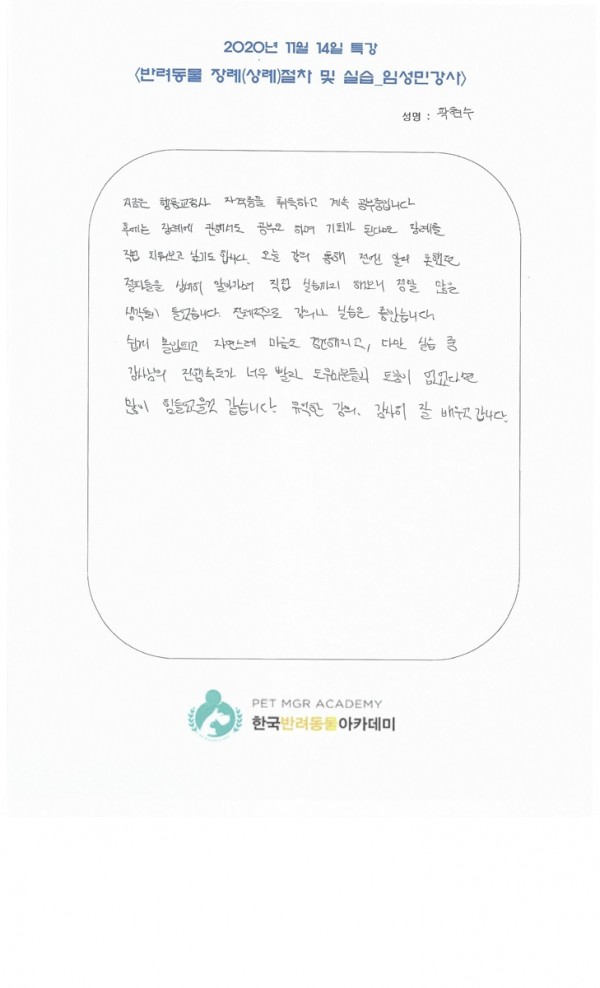 2020년 11월 14일 특강
<반려동물 장례(상례)절차 및 실습_임성민강사>
성명 : 곽현수
지금은 행동교정사 자격증을 취득하고 계속 공부중입니다
후에는 장례에 관해서도 공부로 하며 기회가 된다면 장례를
직접 치뤄보고 싶기도 합니다. 오늘 강의 통해 전엔 알지 못했던
절차들을 상세히 알아가며 직접 실습까지 해보니 정말 많은
생각들이 들었습니다 전체적으로 강의나 실습은 좋았습니다
쉽게 몰입되고 자연스레 마음도 편해지고, 다만 실습 중
강사님의 진행속도가 너무 빨라 도우미분들의 도움이 없었다면
많이 힘들었을것 같습니다. 유익한 강의, 감사히 잘 배우고 갑니다.
PET MGR ACADEMY
한국반려동물아카데미